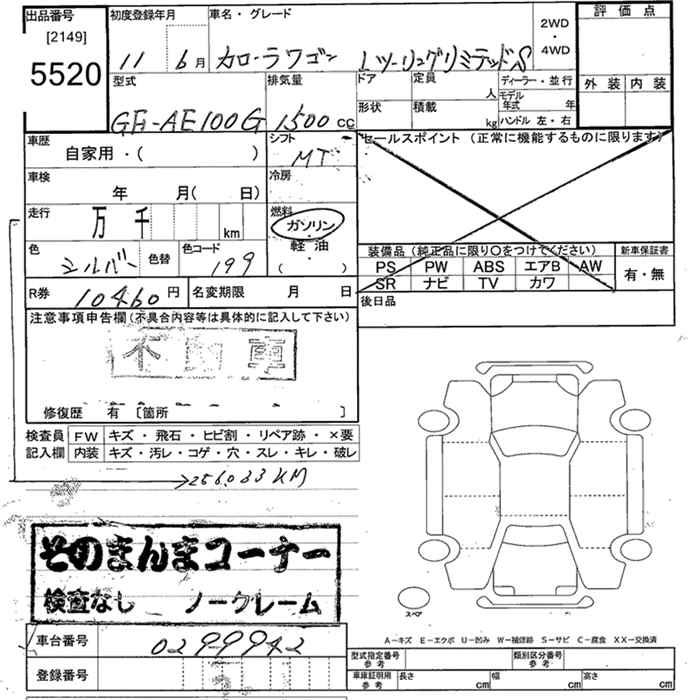 出品番号 初度登録年月 車名・グレード 2WD ・ 4WD 評価点
[2149]
5520 11 6月 カローラワゴン Lツーリングリミテッド S
型式 排気量 ドア 定員 人 ディーラー・並行 外装 内装
モデル年式 年
GF-AE100G 1500 cc 形状 積載 kg ハンドル 左・右
車歴 シフト セールスポイント (正常に機能するものに限ります)
自家用・( ) MT
車検 冷房
年 月( 日)
走行 燃料
万 千 km ガソリン
色 色替 色コード 軽・油 装備品 (純正品に限り〇をつけてください) 新車保証書
シルバー 199 ( ) PS PW ABS エアB AW 有・無
SR ナビ TV カワ
R券 10460円 名変期限 月 日 後日品
注意事項申告欄(不具合内容等は具体的に記入して下さい)
不 車
修復歴 有 [箇所 ]
検査員 FW キズ・飛石・ヒビ割・リペア跡・×要
記入欄 内装 キズ・汚レ・コゲ・穴・スレ・キレ・破レ
256,033KM
そのまんまコーナー
検査なし ノークレーム
スペア
車台番号 0299942
A-キズ E-エクボ U-凹み W-補修跡 S-サビ C-腐食 XX-交換済
登録番号 型式指定番号 参考 類別区分番号 参考
車庫証明用 参考 長さ cm 幅 cm 高さ cm